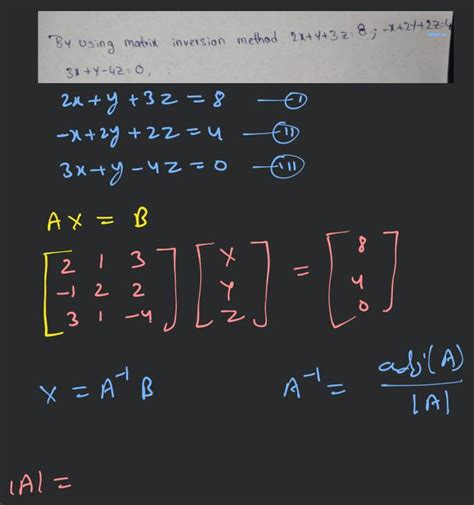 By using matrix inversion method 2x+y+3z=8; -x+2y+2z=4
3x+y-4z=0,
2x+y+3z=8 —(I)
-x+2y+2z=4 —(II)
3x+y-4z=0 —(III)
AX = B
[2 1 3] [x] = [8]
[-1 2 2] [y] [4]
[3 1 -4] [z] [0]
X = A⁻¹ B A⁻¹ = adj(A)/|A|
|A| =